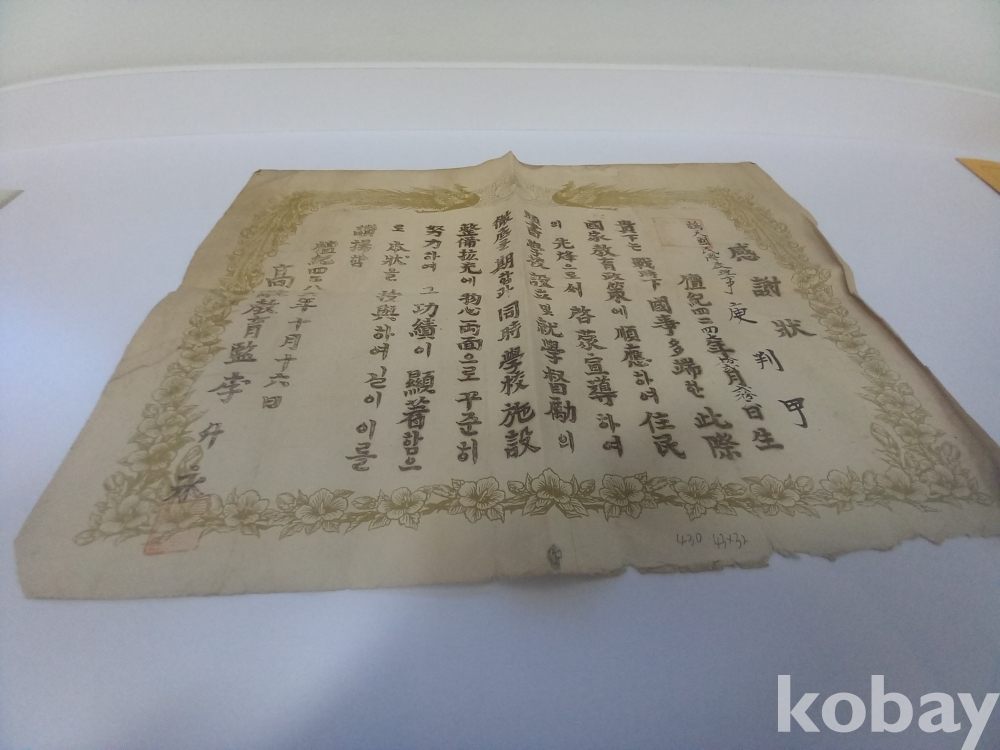 感謝狀
庚 判 甲
檀紀四二四 年 月 日生
貴下는 戰時下 國事多端한 此際
國家敎育政策에 順應하여 住民
의 先烽으로서 啓蒙宣導하여
學校設立 및 就學督勵의
徹底를 期함과 同時 學校施設
整備拡充에 物心両面으로 꾸준히
努力하여 그 功績이 顯著함으
로 玆狀을 授與하여 길이 이를
讃揚함
檀紀四二八 年十月十六日
高 敎育監 李
430 43×32
kobay